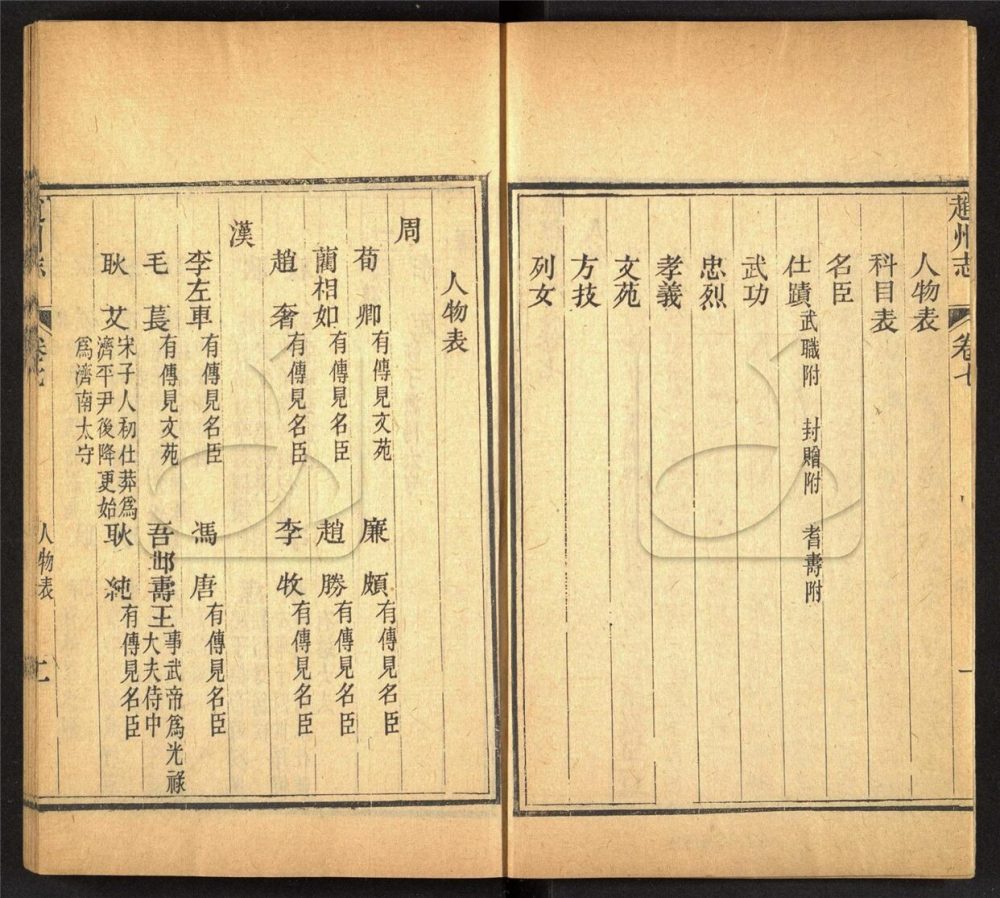 趙州志 卷七 一
人物表
科目表
名臣
仕蹟 武職附 封贈附 耆壽附
武功
忠烈
孝義
文苑
方技
列女
人物表
周
荀卿 有傳見文苑 廉頗 有傳見名臣
藺相如 有傳見名臣 趙勝 有傳見名臣
趙奢 有傳見名臣 李牧 有傳見名臣
漢
李左車 有傳見名臣 馮唐 有傳見名臣
毛萇 有傳見文苑 吾邱壽王 事武帝爲光祿大夫侍中
耿艾 宋子人初仕莽爲濟平尹後降更始爲濟南太守 耿純 有傳見名臣
卷七 人物表